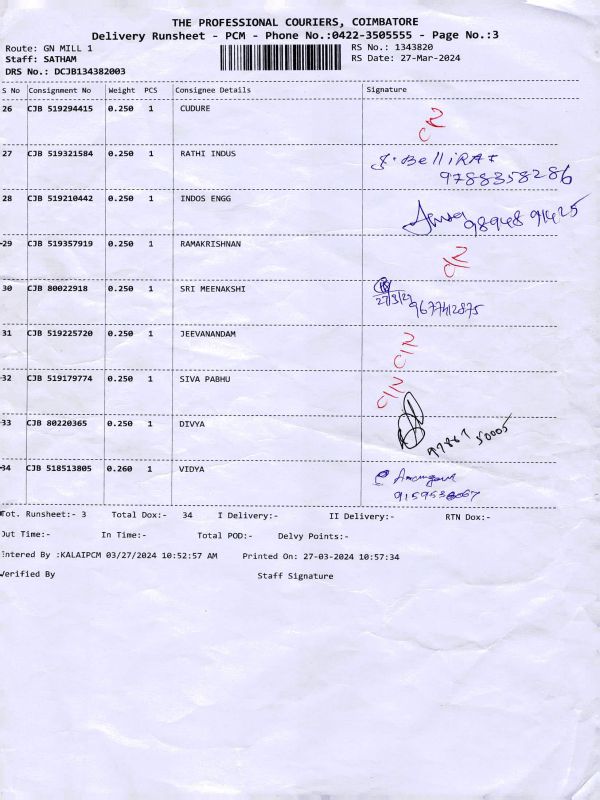 THE PROFESSIONAL COURIERS, COIMBATORE
Delivery Runsheet - PCM - Phone No.:0422-3505555 - Page No.:3
Route: GN MILL 1 RS No.: 1343820
Staff: SATHAM RS Date: 27-Mar-2024
DRS No.: DCJB134382003
S No Consignment No Weight PCS Consignee Details Signature
26 CJB 519294415 0.250 1 CUDURE
27 CJB 519321584 0.250 1 RATHI INDUS
9788358286
28 CJB 519210442 0.250 1 INDOS ENGG
98948 91425
29 CJB 519357919 0.250 1 RAMAKRISHNAN
30 CJB 80022918 0.250 1 SRI MEENAKSHI
27/3/24
31 CJB 519225720 0.250 1 JEEVANANDAM
32 CJB 519179774 0.250 1 SIVA PABHU
33 CJB 80220365 0.250 1 DIVYA
97867 50005
34 CJB 518513805 0.260 1 VIDYA
Tot. Runsheet:- 3 Total Dox:- 34 I Delivery:- II Delivery:- RTN Dox:-
Out Time:- In Time:- Total POD:- Delvy Points:-
Entered By :KALAIPCM 03/27/2024 10:52:57 AM Printed On: 27-03-2024 10:57:34
Verified By Staff Signature